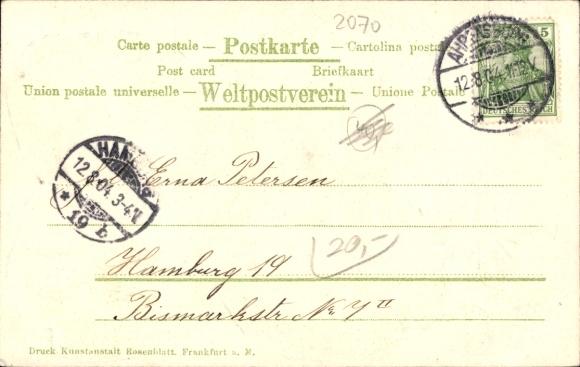 2070
Carte postale — Postkarte — Cartolina postale
Post card Briefkaart
Union postale universelle — Weltpostverein — Unione Postale
5
DEUTSCHES REICH
12.8.04
HAMBURG
12.8.04. 3-4N
* 19 b *
Erna Petersen
20,-
Hamburg 19
Bismarkstr No 7 II
Druck Kunstanstalt Rosenblatt. Frankfurt a. M.